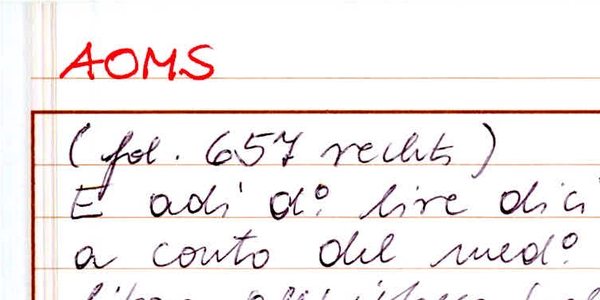 AOMS
(fol. 657 rechts)
E adi d.º lire dici
a conto del med.º